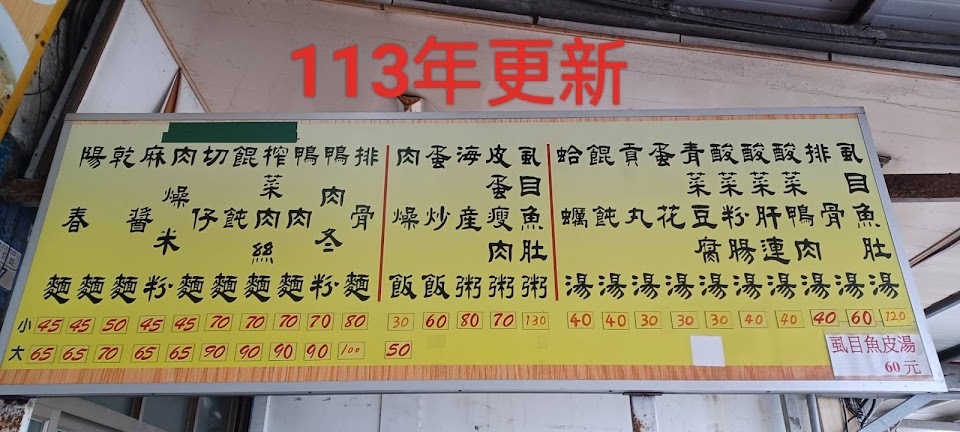 113年更新
陽春麵
乾麵
麻醬麵
肉燥米粉
切仔麵
餛飩麵
榨菜肉絲麵
鴨肉麵
鴨肉冬粉
排骨麵
肉燥飯
蛋炒飯
海產粥
皮蛋瘦肉粥
虱目魚肚粥
蛤蠣湯
餛飩湯
貢丸湯
蛋花湯
青菜豆腐湯
酸菜粉腸湯
酸菜肝連湯
酸菜鴨肉湯
排骨湯
虱目魚肚湯
小 45 45 50 45 45 70 70 70 70 80 30 60 80 70 130 40 40 30 30 30 40 40 40 60 120
大 65 65 70 65 65 90 90 90 90 100 50
虱目魚皮湯
60元